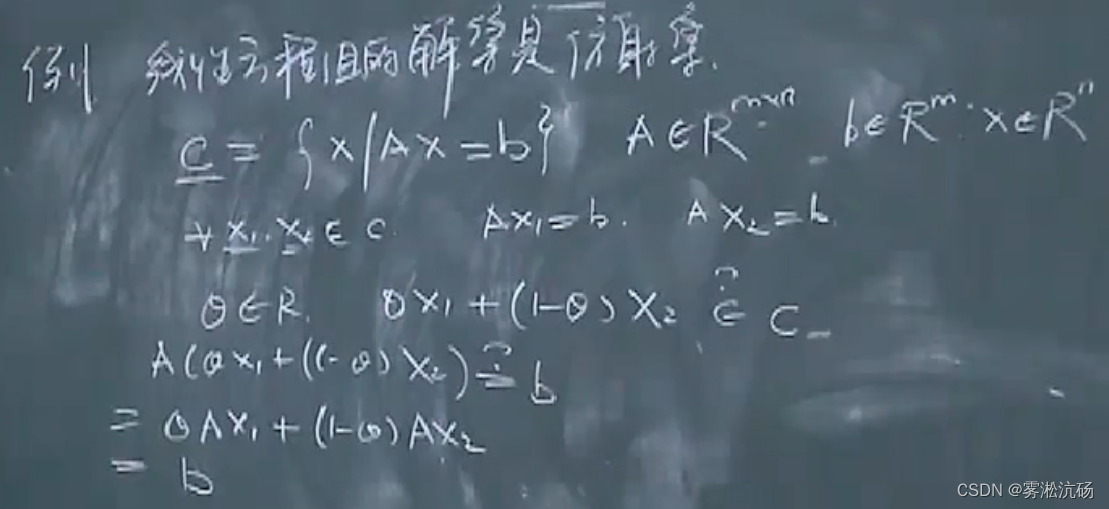 例 线性方程组的解集是仿射集.
C = {x|Ax=b} A∈R^{m×n} b∈R^m. x∈R^n
∀ x₁, x₂ ∈ C. Ax₁=b. Ax₂=b.
θ∈R. θx₁+(1-θ)x₂ ∈? C
A(θx₁+(1-θ)x₂) =? b
= θAx₁+(1-θ)Ax₂
= b
CSDN @雾淞沆砀